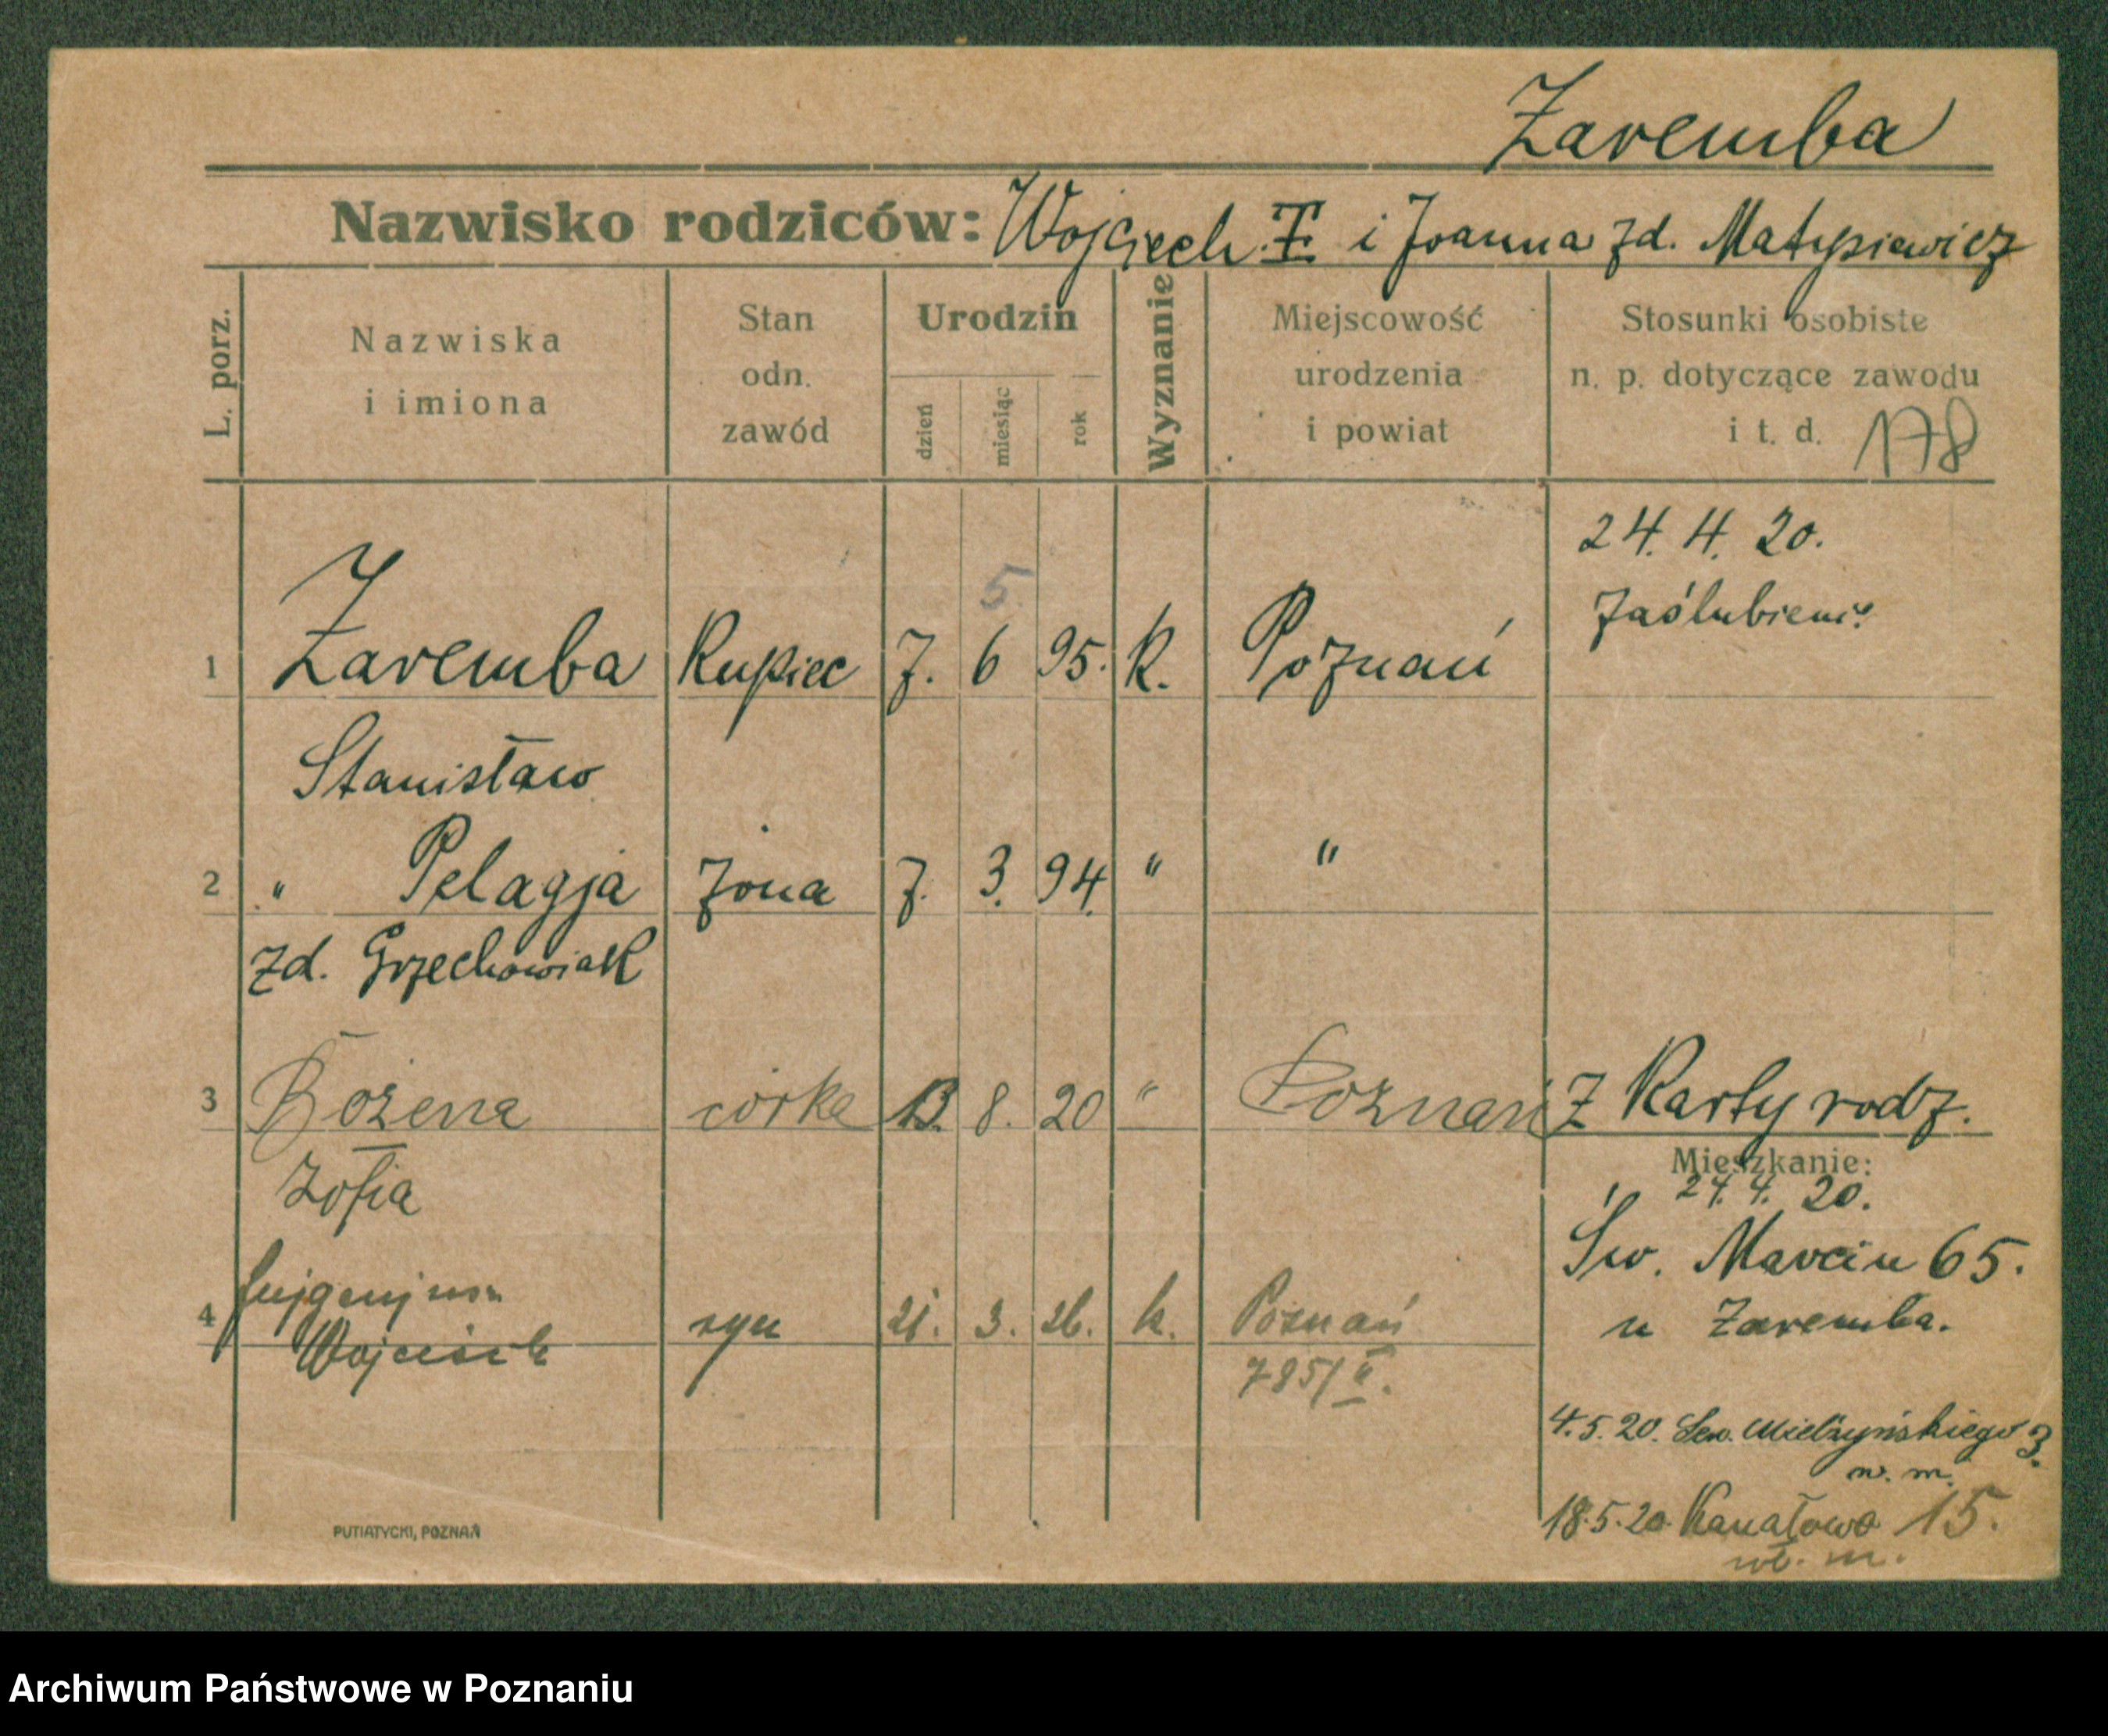 Zaremba
Nazwisko rodziców: Wojciech Z. i Joanna zd. Matysiewicz
L. porz.
Nazwiska i imiona
Stan odn. zawód
Urodzin
dzień miesiąc rok
Wyznanie
Miejscowość urodzenia i powiat
Stosunki osobiste n. p. dotyczące zawodu i t. d. 178
24. 4. 20.
Zaślubieni?
5.
1 Zaremba Kupiec 7. 6 95. k. Poznań
Stanisław
2 " Pelagja żona 7. 3. 94. " "
zd. Grzechowiak
3 Bożena córka 13. 8. 20 " Poznań Z Karty rodz.
Zofia
Mieszkanie:
24. 4. 20.
Św. Marcin 65.
u Zaremba.
4 Wojciech syn 21. 3. 26. k. Poznań
785/II.
4. 5. 20. Sew. Mielżyńskiego 3.
w. m.
18. 5. 20. Kanałowa 15.
w. m.
PUTIATYCKI, POZNAŃ
Archiwum Państwowe w Poznaniu